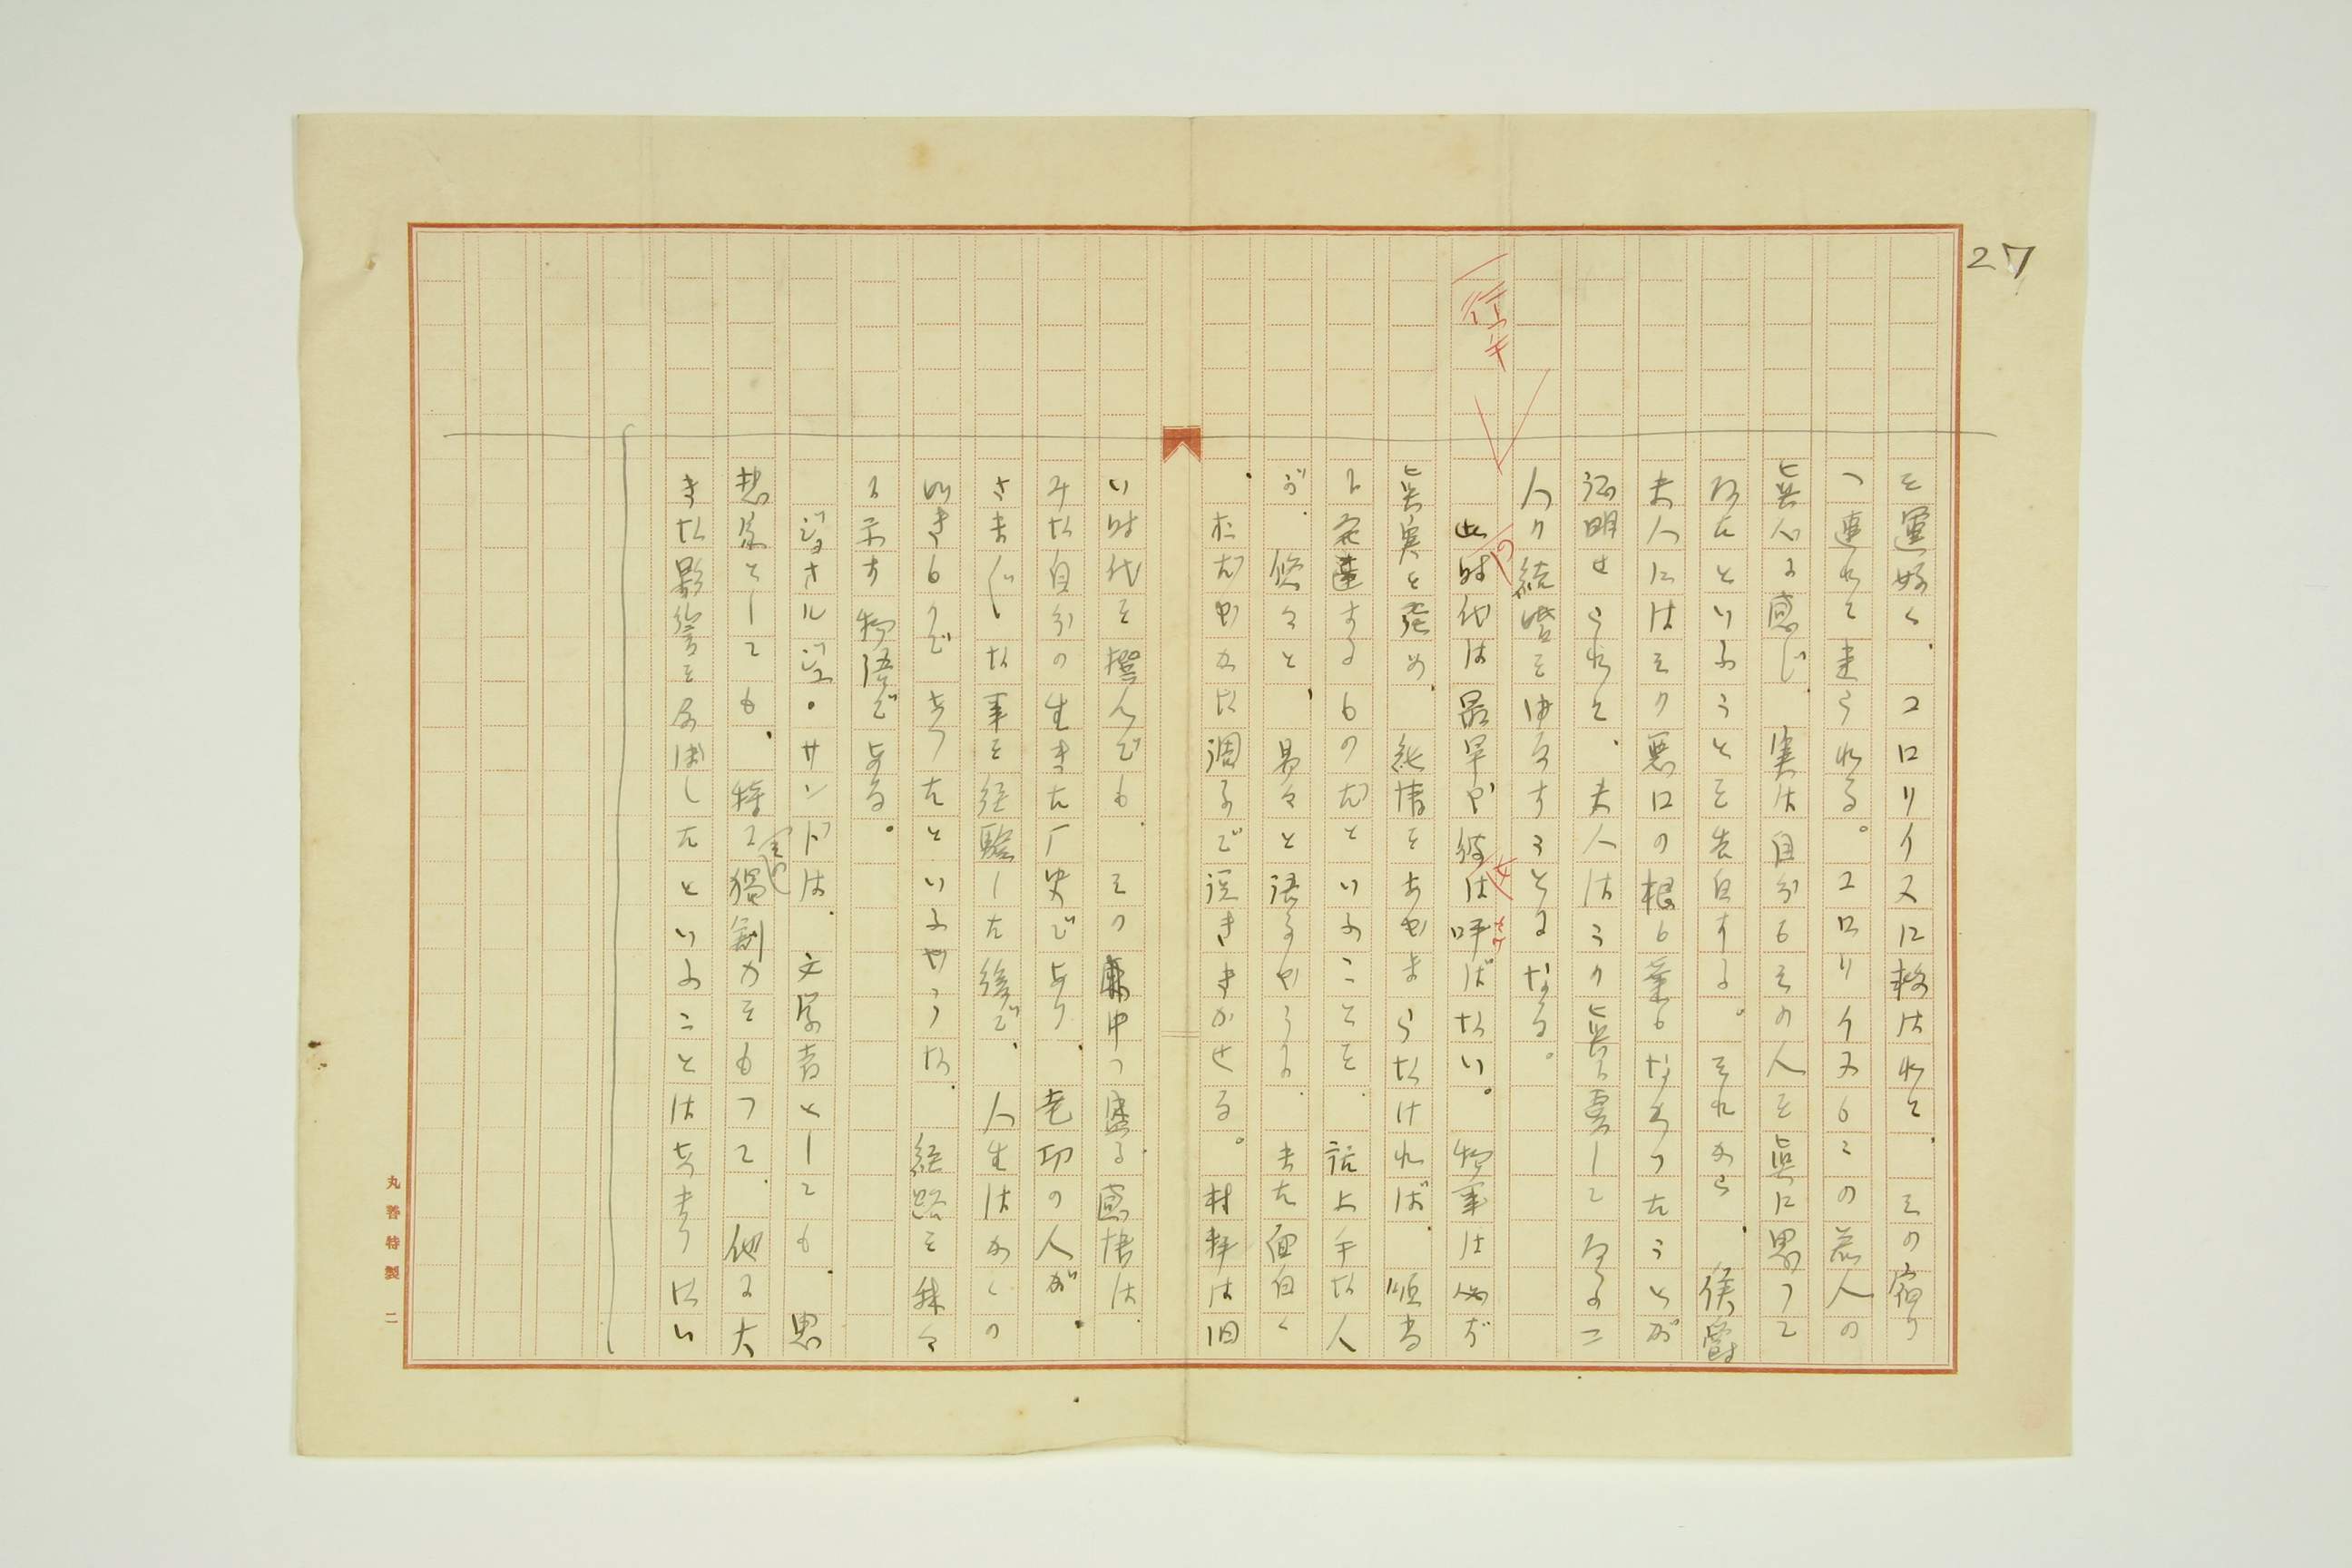 27
を運好く、コロリイヌに救はれて、その宿り
へ連れて走られる。コロリイヌもこの恋人の
眞心に感じ、実は自分もその人を眞に思つて
ゐたといふことを告白する。それから、侯爵
夫人にはその悪口の根も葉もなかつたことが
証明せられて、夫人はこの眞に愛してゐる二
人の結婚をゆるすことになる。
一行あき
此の時代は最早や彼女は叫ばない。物事は必ず
さけ
眞実を秘め、純情をあやまらなければ、順当
に発達するものだといふことを、話上手な人
が、悠々と、易々と語るやうに、また面白く
、おだやかな調子で説ききかせる。材料は旧
い時代を撰んでも、その中に盛る感情は、
みな自分の生きた厂史であり、老功の人が、
さまざまな事を経験した後で、人生はかくの
如きものであつたといふやうな、経路を我々
に示す物語である。
ジョルジュ・サンドは、文学者としても、思
想家としても、特に独創力をもつて、他に大
きな影響を及ぼしたといふことはあまりない
丸善特製 二